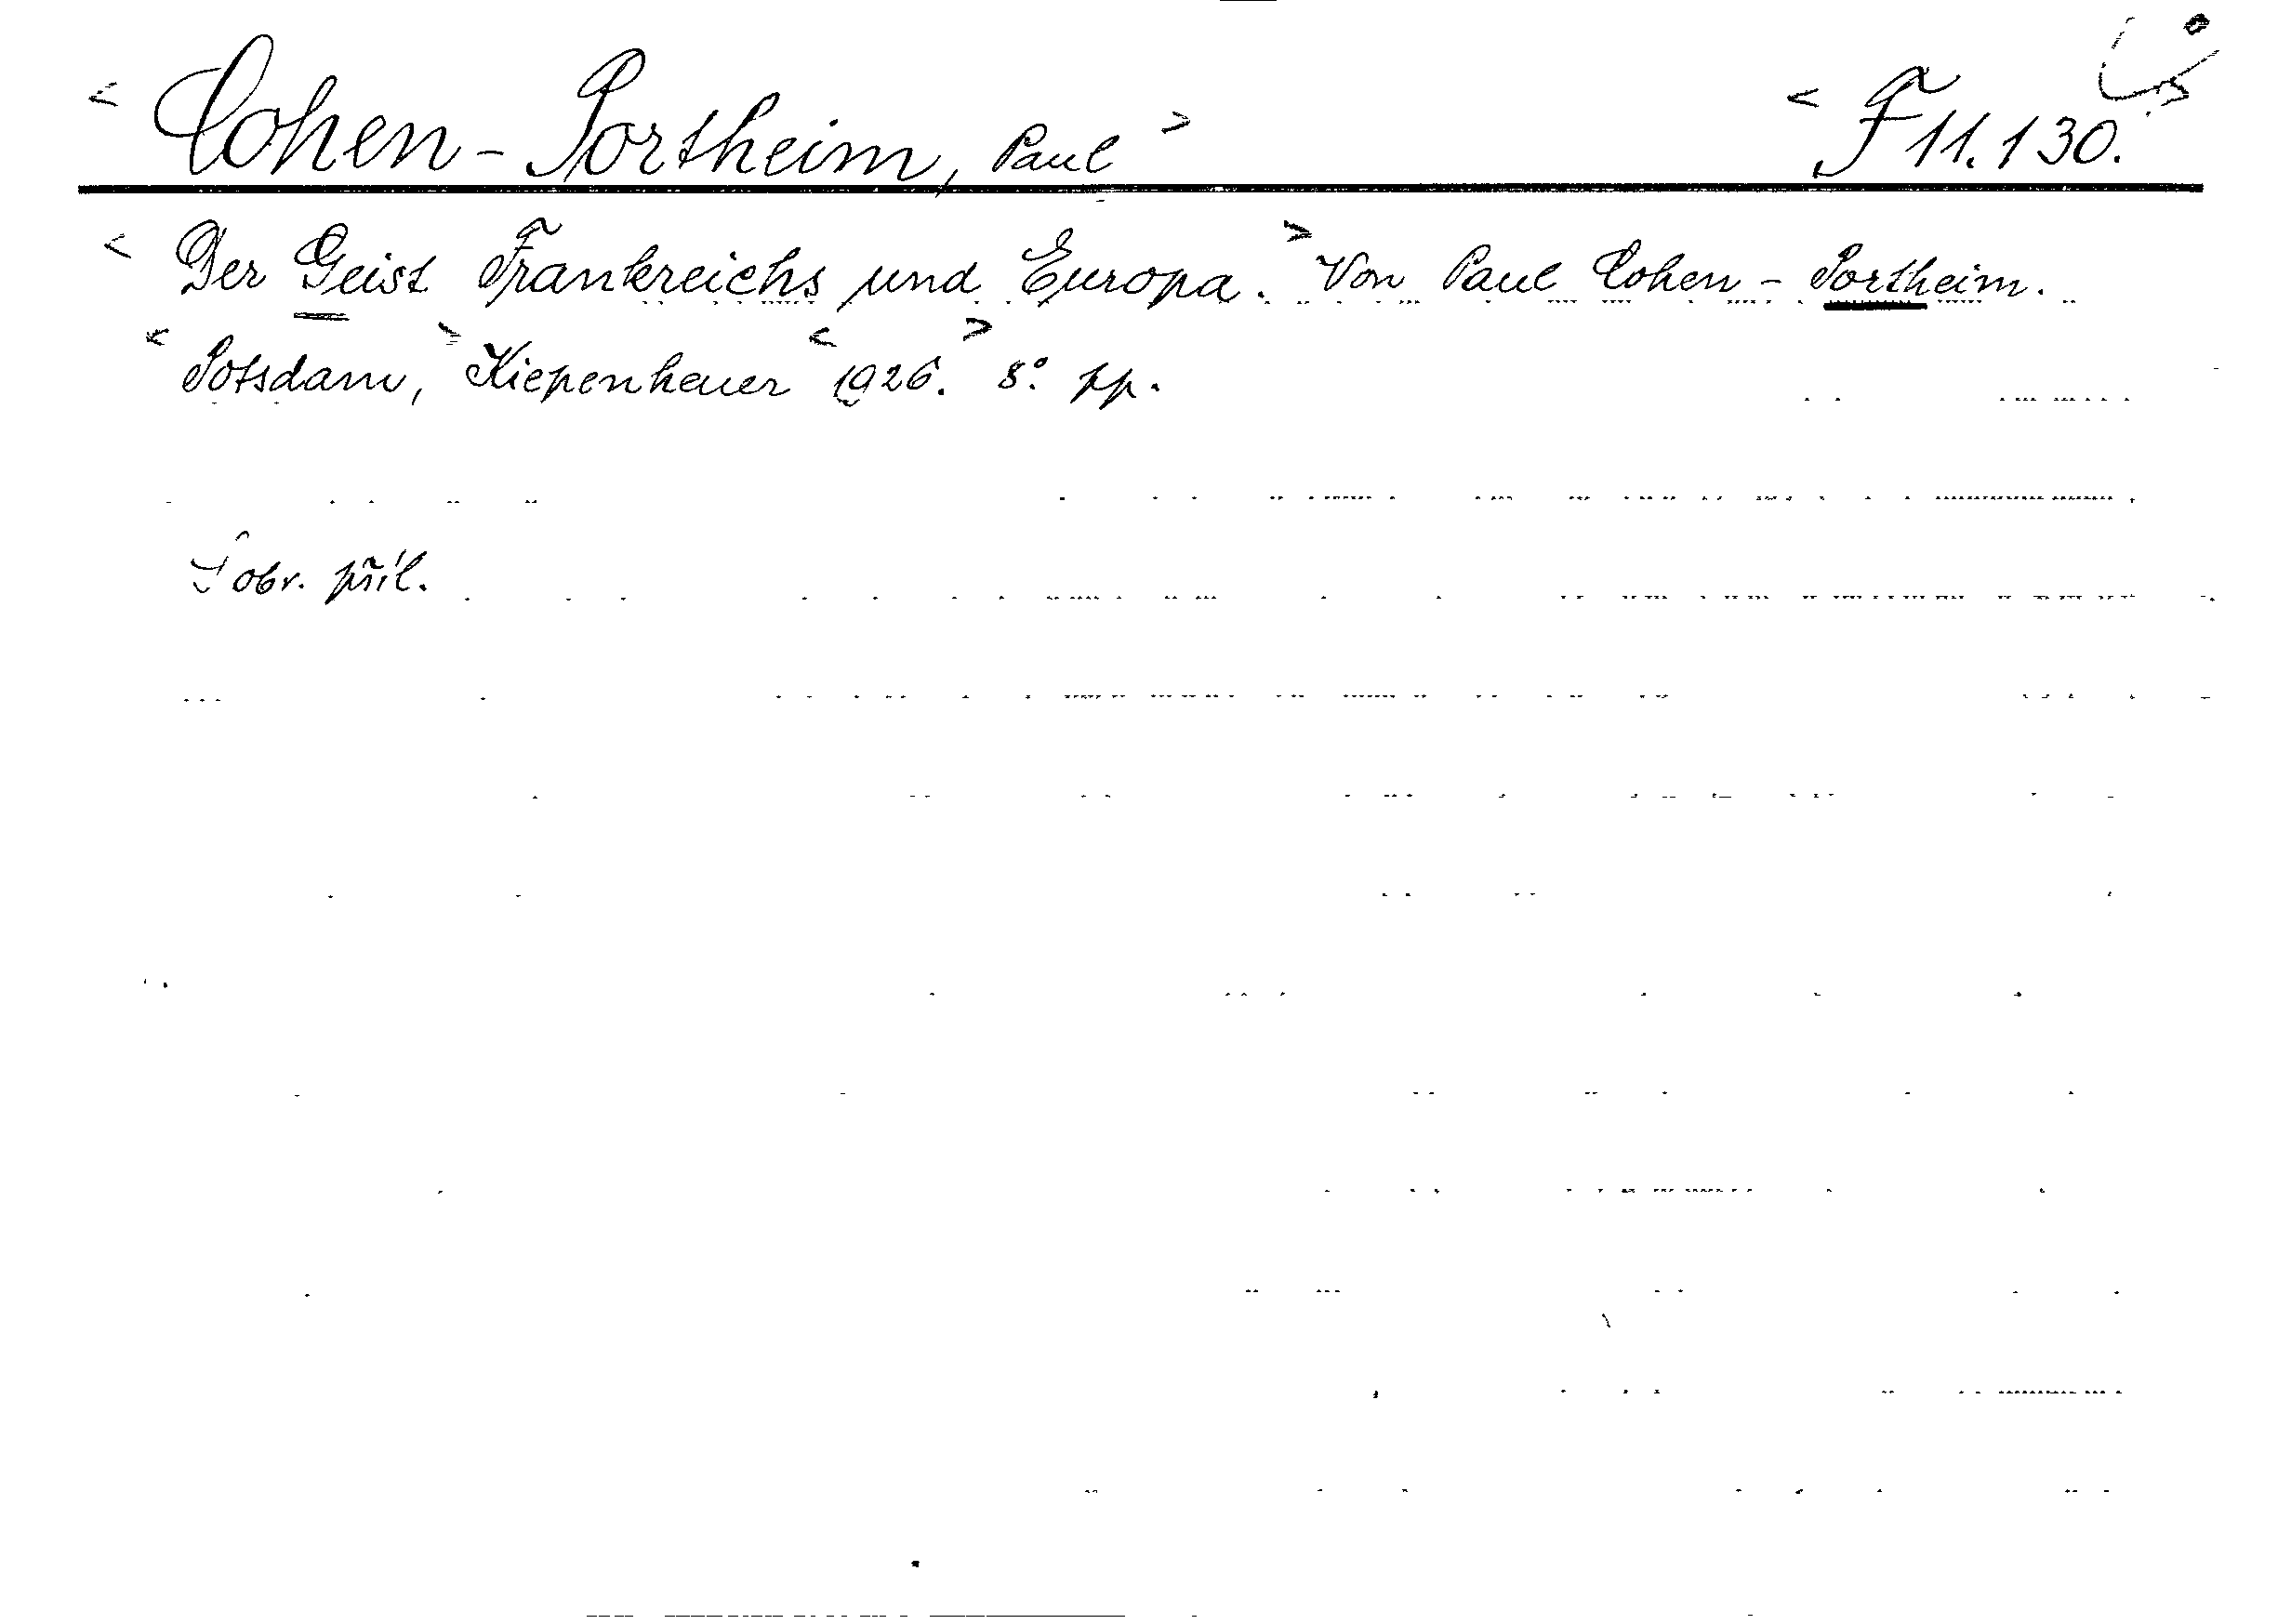 < Cohen-Portheim, Paul > < F 11.130.
< Der Geist Frankreichs und Europa. > Von Paul Cohen-Portheim.
< Potsdam, > Kiepenheuer < 1926. > 8° pp.
S obr. příl.